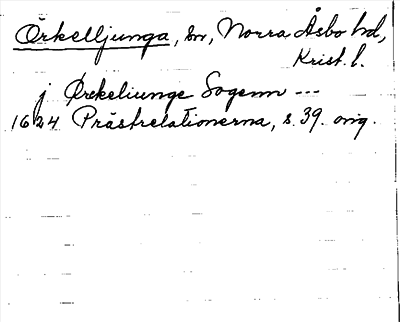 Örkelljunga, sn, Norra Åsbo hd,
Krist. l.
j Ørkeliunge Sogenn ---
1624 Prästrelationerna, s. 39. orig.